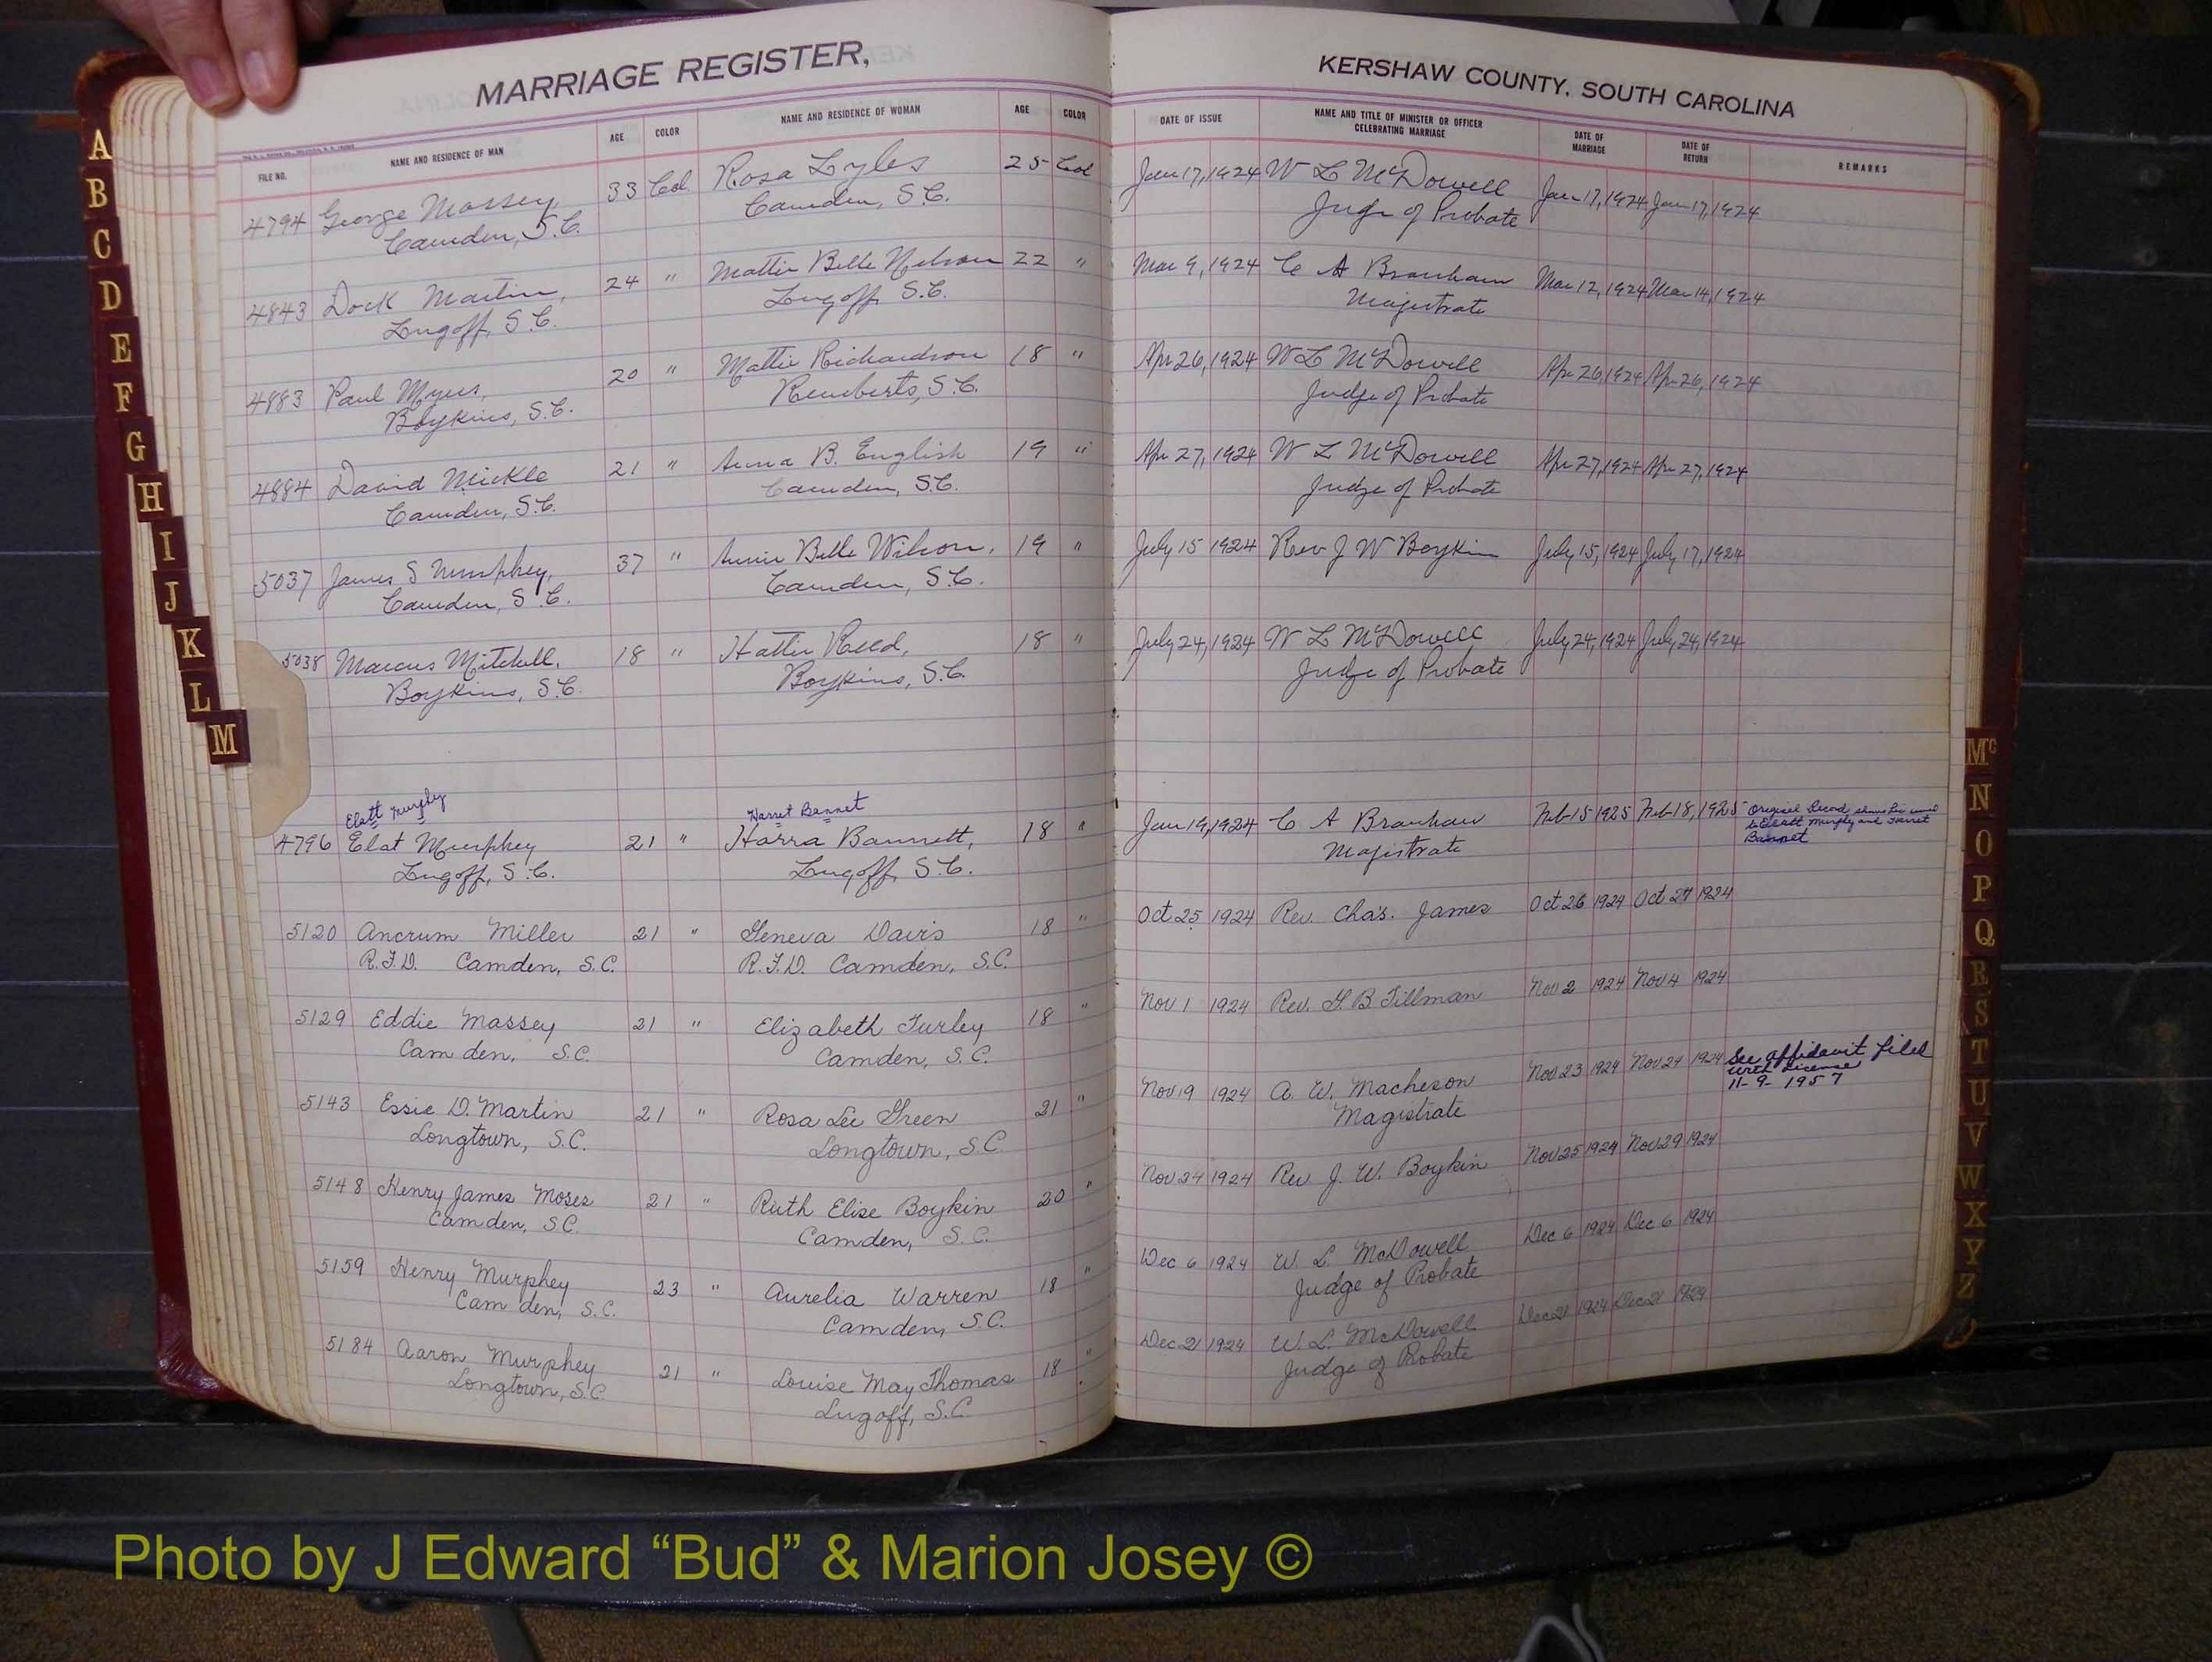 MARRIAGE REGISTER,
KERSHAW COUNTY, SOUTH CAROLINA
FILE NO. NAME AND RESIDENCE OF MAN AGE COLOR NAME AND RESIDENCE OF WOMAN AGE COLOR DATE OF ISSUE NAME AND TITLE OF MINISTER OR OFFICER CELEBRATING MARRIAGE DATE OF MARRIAGE DATE OF RETURN REMARKS
4794 George Massey, 33 Col. Rosa Lyles 25 Col Jan 17, 1924 W L McDowell Jan 17, 1924 Jan 17, 1924
Camden, S.C. Camden, S.C. Judge of Probate
4843 Dock Martin, 24 " Mattie Belle Nelson 22 " Mar 9, 1924 C A Branham Mar 12, 1924 Mar 14, 1924
Lugoff, S.C. Lugoff S.C. Magistrate
4883 Paul Myers, 20 " Mattie Richardson 18 " Apr 26, 1924 W L McDowell Apr 26, 1924 Apr 26, 1924
Boykins, S.C. Remberts, S.C. Judge of Probate
4884 David Mickle 21 " Anna B. English 19 " Apr 27, 1924 W L McDowell Apr 27, 1924 Apr 27, 1924
Camden, S.C. Camden, S.C. Judge of Probate
5037 James S Murphey, 37 " Annie Belle Wilson, 19 " July 15 1924 Rev J W Boykin July 15, 1924 July 17, 1924
Camden, S.C. Camden, S.C.
5038 Marcus Mitchell, 18 " Hattie Reed, 18 " July 24, 1924 W L McDowell July 24, 1924 July 24, 1924
Boykins, S.C. Boykins, S.C. Judge of Probate
Elatt Murphy Harret Bannet
4796 Elat Murphey 21 " Harra Bannett, 18 " Jan 19, 1924 C A Branham Feb 15 1925 Feb 18, 1925 Original Record shows
Lugoff, S.C. Lugoff S.C. Magistrate Elatt Murphy and Harret
Bannet
5120 Ancrum Miller 21 " Geneva Davis 18 " Oct 25 1924 Rev. Cha's. James Oct 26 1924 Oct 27 1924
R.F.D. Camden, S.C. R.F.D. Camden, S.C.
5129 Eddie Massey 21 " Elizabeth Turley 18 " Nov 1 1924 Rev. G. B Tillman Nov 2 1924 Nov 4 1924
Camden, S.C. Camden, S.C.
5143 Essie D. Martin 21 " Rosa Lee Green 21 " Nov 19 1924 A. W. Macheson Nov 23 1924 Nov 24 1924 See affidavit filed
Longtown, S.C. Longtown, S.C. Magistrate with License
11-9-1957
5148 Henry James Moses 21 " Ruth Elise Boykin 20 " Nov 24 1924 Rev. J. W. Boykin Nov 25 1924 Nov 29 1924
Camden, S.C. Camden, S.C.
5159 Henry Murphey 23 " Aurelia Warren 18 " Dec 6 1924 W. L. McDowell Dec 6 1924 Dec 6 1924
Camden, S.C. Camden, S.C. Judge of Probate
5184 Aaron Murphey 21 " Louise May Thomas 18 " Dec 21 1924 W. L. McDowell Dec 21 1924 Dec 21 1924
Longtown, S.C. Lugoff, S.C. Judge of Probate
A
B
C
D
E
F
G
H
I
J
K
L
M
Mc
N
O
P
Q
R
S
T
U
V
W
X
Y
Z
Photo by J Edward “Bud” & Marion Josey ©